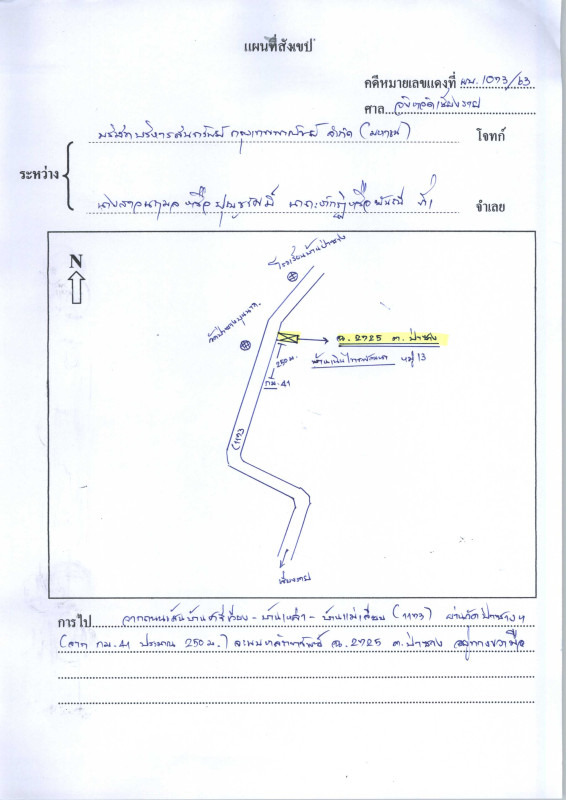 แผนที่สังเขป
คดีหมายเลขแดงที่ ผบ. 1073/63
ศาล จังหวัดเชียงราย
บริษัทบริหารสินทรัพย์ กรุงเทพพาณิชย์ จำกัด (มหาชน) โจทก์
ระหว่าง
นางสาวนฤมล หรือ จำเลย
N
โรงเรียนบ้านป่าซาง
วัดป่าซาง
ฉ. 2725 ต. ป่าซาง
250 ม.
หมู่ 13
กม. 41
(1173
เชียงราย
การไป จากถนนเส้นบ้าน - บ้านเหล่า - บ้าน (1173) ผ่านวัดป่าซางฯ
(จาก กม. 41 ประมาณ 250 ม.) จะพบหลักทรัพย์ ฉ. 2725 ต. ป่าซาง อยู่ทางขวามือ